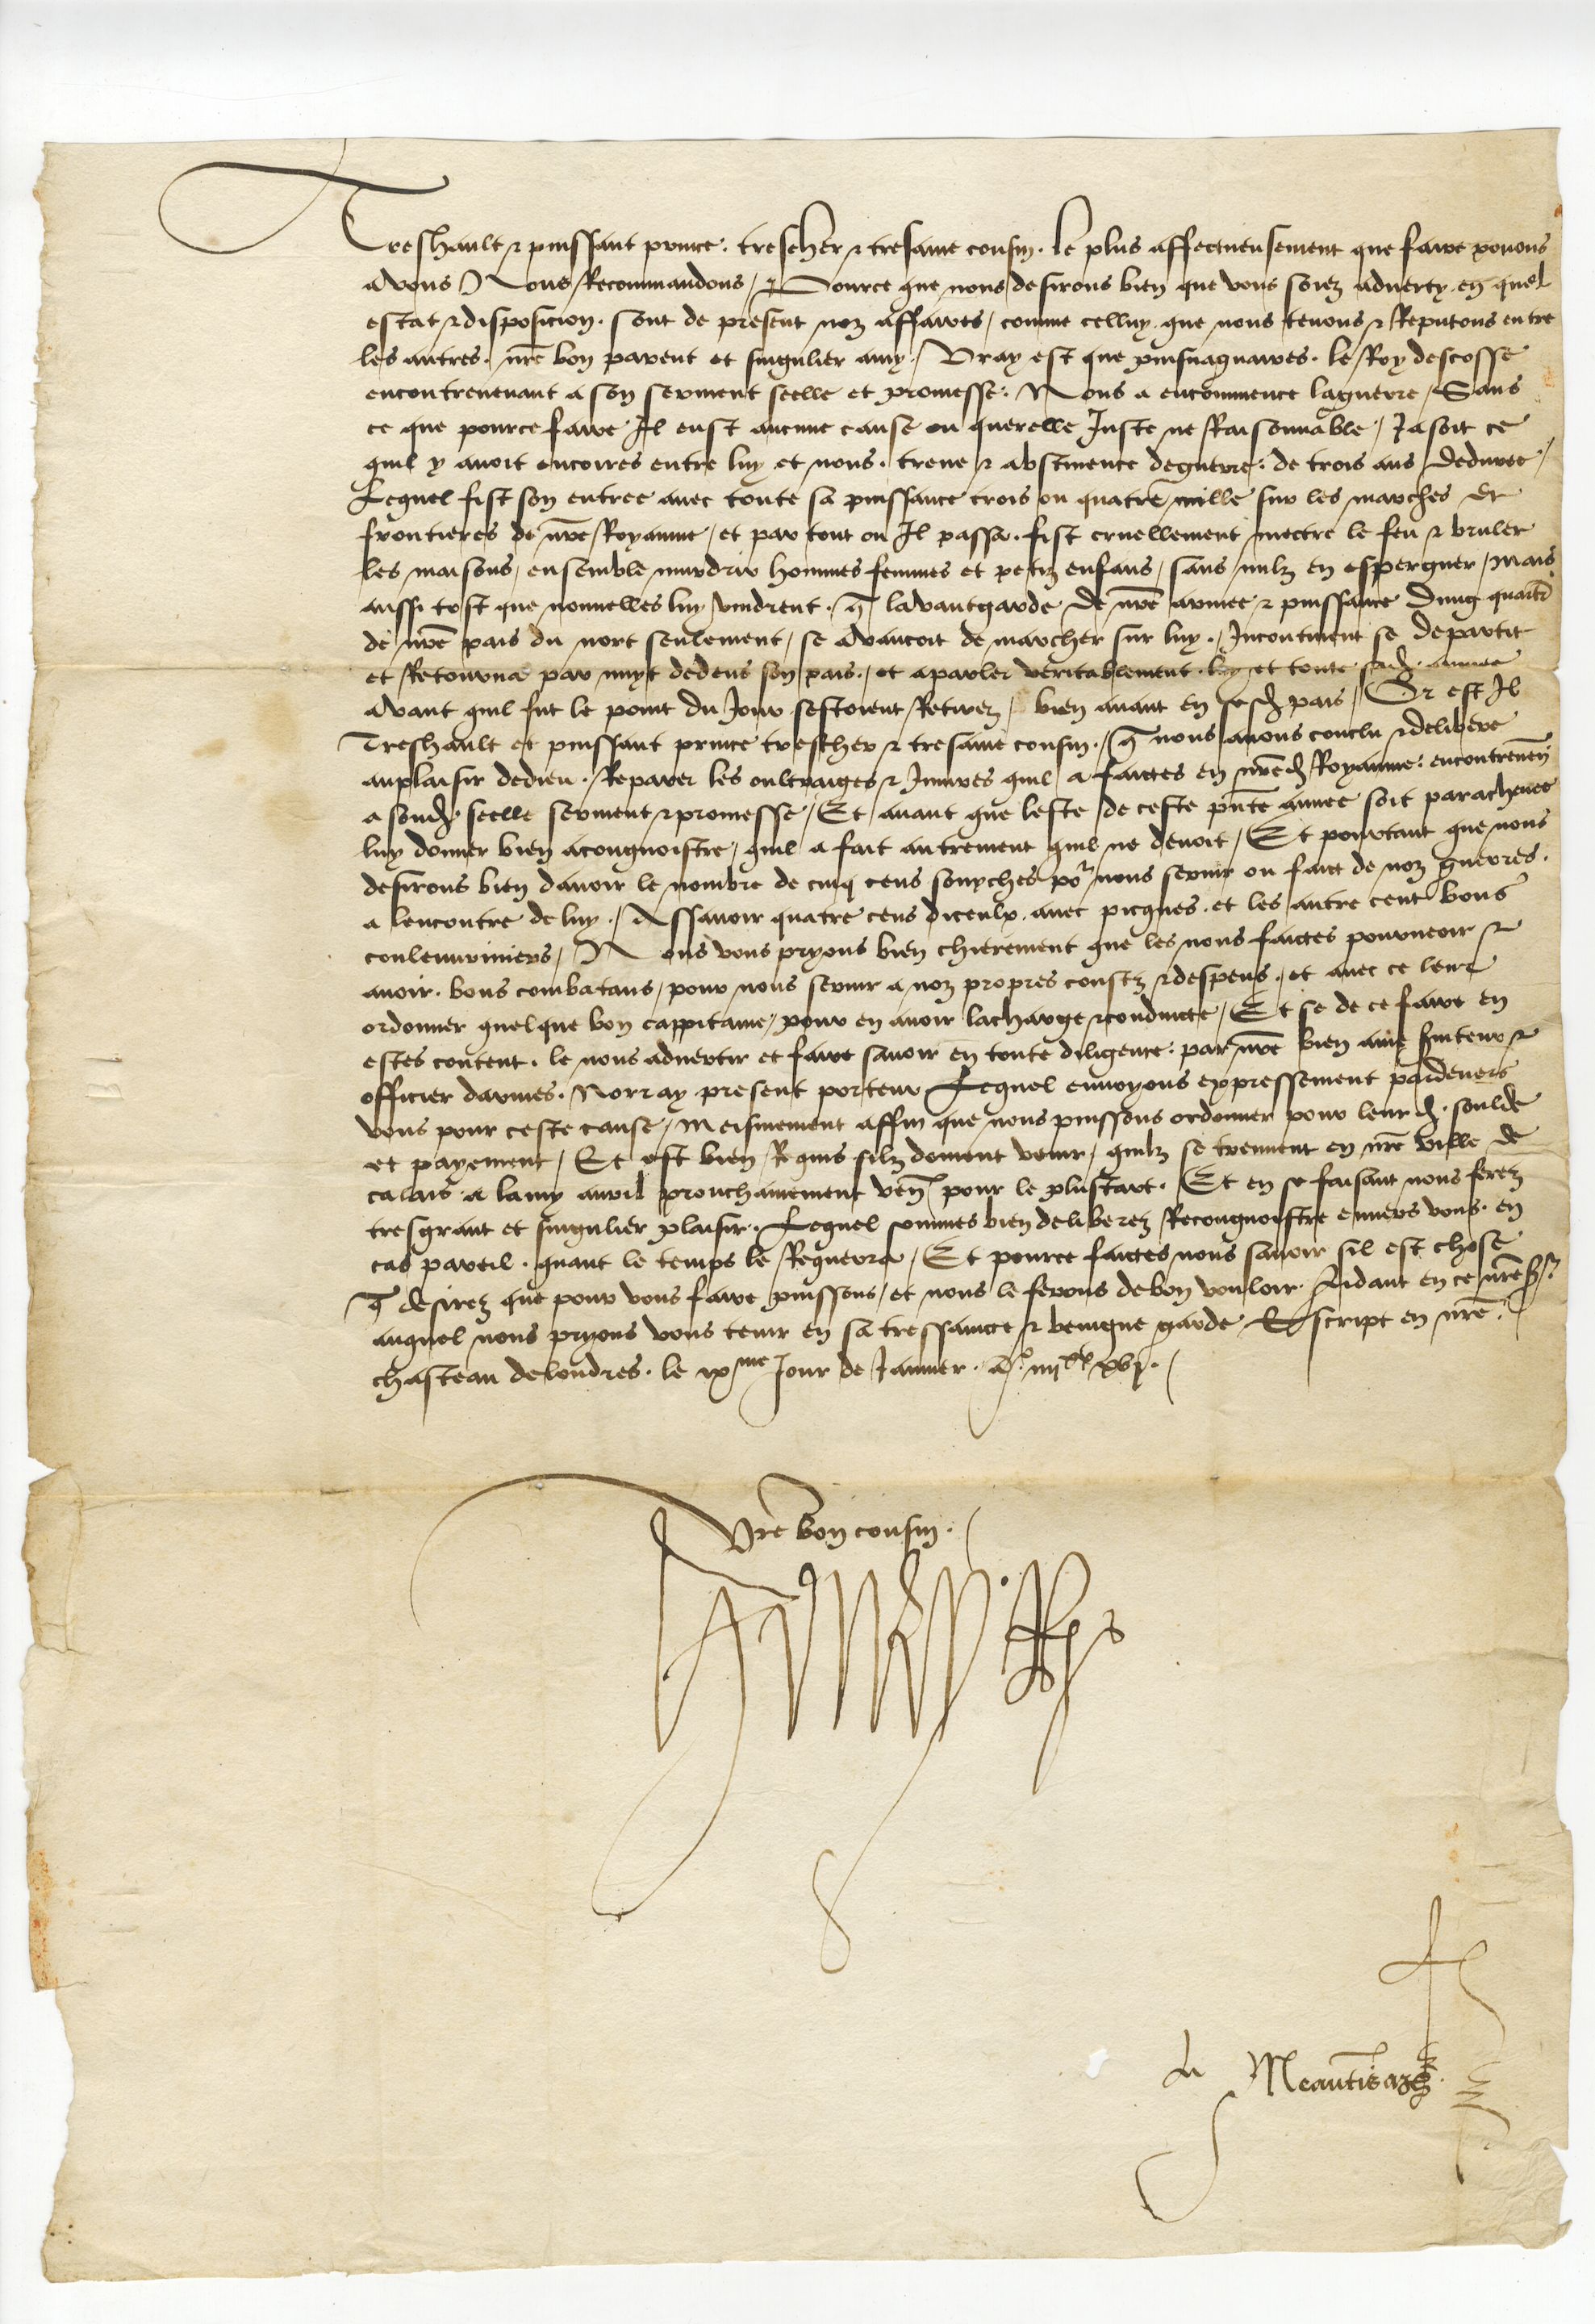 Treshault & puissant prince. trescher & tresame cousin. le plus affectueusement que faire pouons
a vous Nous Recommandons / Et Pource que nous desirons bien que vous soiez aduerty en quel
estat & disposicion. sont de present noz affaires / comme celluy que nous tenons & Reputons entre
les autres. nre bon parent et singulier amy / Vray est que puisnaguaires. le Roy descosse
encontreuenant a son serment seelle et promesse. Nous a encommence laguerre / Sans
ce que pource faire Il eust aucune cause ou querelle Juste ne Raisonnable / Jasoit ce
quil y auoit encoires entre luy et nous. treue & abstinence deguerre. de trois ans Aduree /
Lequel fist son entree auec toute sa puissance trois ou quatre mille sur les marches et
frontieres de nre Royaume / et par tout ou Il passa. fist cruellement mectre le feu & bruler
les maisons / ensemble murdrir hommes femmes et petiz enfans / sans nulz en espergner / Mais
aussi tost que nouuelles luy vindrent. q lauantgarde de nre armee & puissance Dung quartr
de nre pais du nort seulement / se auancoit de marcher sur luy. / Incontinent se departit
et Retourna par nuyt dedens son pais. / et aparler veritablement. luy et toute sad. armee
auant quil fut le point du Jour sestoient Retirez / bien auant en sesd. pais / Or est Il
Treshault et puissant prince trescher & tresame cousin. / q nous auons conclu & delibere
auplaisir dedieu. Reparer les oultraiges & Iniures quil a faictes en nred. Royaume. encontreuen
a sond. seelle serment & promesse / Et auant que leste de ceste pnte annee soit paracheuee
luy donner bien acongnoistre / quil a fait autrement quil ne deuoit / Et pourtant que nous
desirons bien dauoir le nombre de cinq cens souyches por nous seruir ou faict de noz guerres.
a lencontre de luy. / Assauoir quatre cens diceulx. auec picques. et les autre cent bons
couleuuriniers / Nous vous pryons bien chierement que les nous faictes pourueoir &
auoir. bons combatans / pour nous seruir a noz propres coustz & despens. / et auec ce leur
ordonner quelque bon cappitaine / pour en auoir lacharge & conduicte / Et se de ce faire en
estes content. le nous aduertir et faire sauoir en toute diligence. par nre bien ame seruiteur &
officier darmes. Norray present porteur Lequel enuoyons expressement pardeuers
vous pour ceste cause / Meismement affin que nous puissons ordonner pour leur d. soulde
et payement / Et est bien Requis silz doiuent venir / quilz se treuuent en nre ville de
calais a lamy auril prouchainement ven pour le plustart. Et en se faisant nous ferez
tresgrant et singulier plaisir. Lequel sommes bien deliberez Recongnoistre enuers vous. en
cas pareil. quant le temps le Requerra / Et pource faictes nous sauoir sil est chose
q desirez que pour vous faire puissons / et nous le ferons de bon vouloir. Aidant en ce nre sr
auquel nous pryons vous tenir en sa tressaincte & benigne garde Escript en nre
chasteau delondres. le ixme Jour de Januier. Ao. iiiixx xvj.
Vre bon cousin.
Henry. R
Meautis